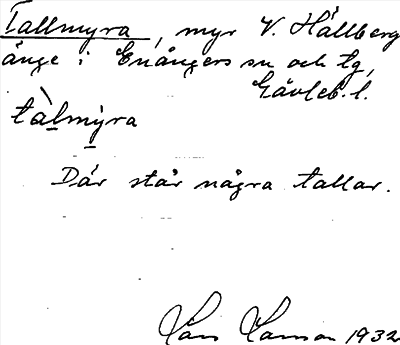 Tallmyra, myr V. Hällberg
änge i Enångers sn och tg,
Gävleb. l.
tàlmýra
Där står några tallar.
Lars Larson 1932